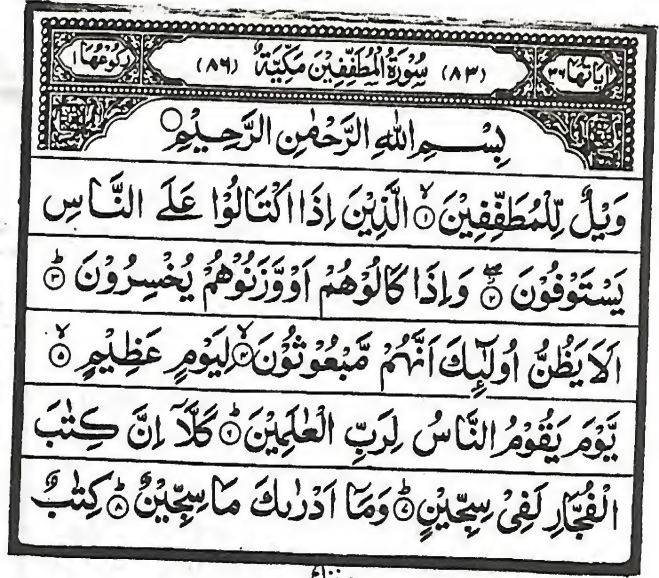 اٰيَاتُهَا ٣٦ (٨٣) سُوْرَةُ الْمُطَفِّفِيْنَ مَكِّيَّةٌ (٨٦) رُكُوْعُهَا ١
بِسْــــمِ اللهِ الرَّحْمٰنِ الرَّحِيْمِ ○
وَيْلٌ لِّلْمُطَفِّفِيْنَ ۙ﴿١﴾ الَّذِيْنَ اِذَا اكْتَالُوْا عَلَى النَّاسِ
يَسْتَوْفُوْنَ ۖ﴿٢﴾ وَاِذَا كَالُوْهُمْ اَوْوَّزَنُوْهُمْ يُخْسِرُوْنَ ؕ﴿٣﴾
اَلَا يَظُنُّ اُولٰٓئِكَ اَنَّهُمْ مَّبْعُوْثُوْنَ ۙ﴿٤﴾ لِيَوْمٍ عَظِيْمٍ ۙ﴿٥﴾
يَّوْمَ يَقُوْمُ النَّاسُ لِرَبِّ الْعٰلَمِيْنَ ؕ﴿٦﴾ كَلَّآ اِنَّ كِتٰبَ
الْفُجَّارِ لَفِيْ سِجِّيْنٍ ؕ﴿٧﴾ وَمَآ اَدْرٰىكَ مَا سِجِّيْنٌ ؕ﴿٨﴾ كِتٰبٌ